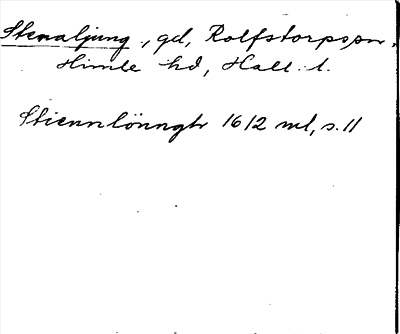 Stenaljung, gd, Rolfstorps sn,
Himle hd, Hall. l.
Stiennlönngh 1612 ml, s. 11